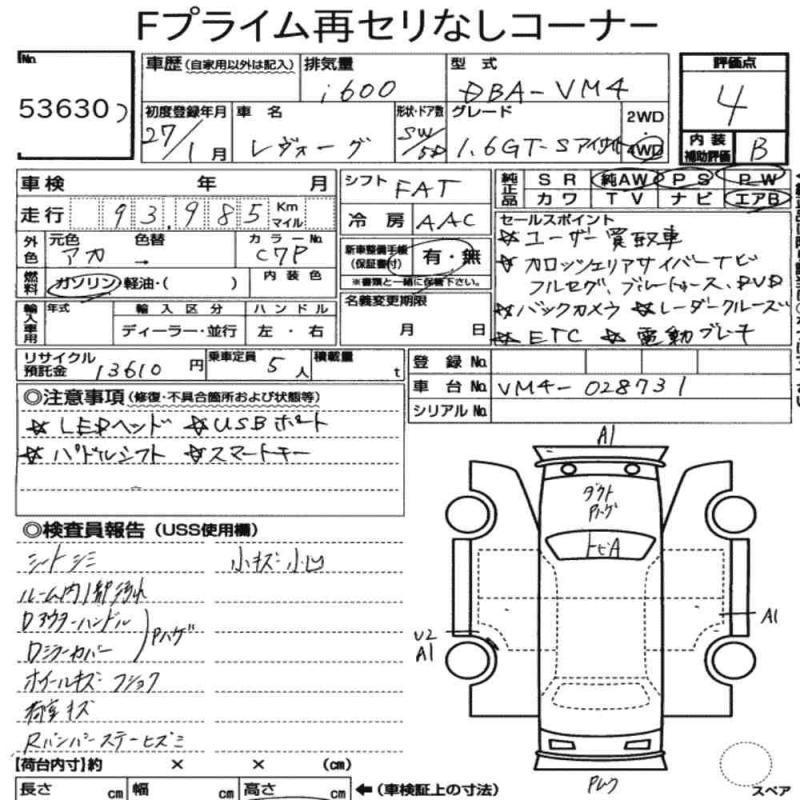 Fプライム再セリなしコーナー
No. 53630
車歴 (自家用以外は記入)
排気量 1600
型式 DBA-VM4
評価点 4
初度登録年月 27/1月
車名 レヴォーグ
形状・ドア数 SW/5D
グレード 1.6GT-Sアイサイト
2WD
4WD
内装補助評価 B
車検 年 月
走行 93,985 Km マイル
シフト FAT
冷房 AAC
純正品 SR 純AW PS PW
カワ TV ナビ エアB
外色 元色 アカ 色替 → カラーNo. C7P
燃料 ガソリン・軽油・( ) 内装色
新車整備手帳(保証書付) 有・無
※書類と一緒に保管下さい。
セールスポイント
☆ユーザー買取車
☆カロッツェリアサイバーナビ
フルセグ、ブルートゥース、DVD
☆バックカメラ ☆レーダークルーズ
☆ETC ☆電動ブレーキ
輸入車用 年式 輸入区分 ハンドル
ディーラー・並行 左・右
名義変更期限 月 日
リサイクル預託金 13610円 乗車定員 5人 積載量 t
登録No.
車台No. VM4-028731
シリアルNo.
◎注意事項 (修復・不具合箇所および状態等)
☆LEDヘッド ☆USBポート
☆パドルシフト ☆スマートキー
◎検査員報告 (USS使用欄)
シートシミ 小キズ・小凹
ルーム内1部汚れ
Dアウターハンドル
Dミラーカバー
Pハゲ
ホイールキズ フショク
荷室キズ
Rバンパーステーヒズミ
A1
ダクト
Pハゲ
トビA
A1
U2
A1
【荷台内寸】約 × × (cm)
長さ cm 幅 cm 高さ cm ←(車検証上の寸法)
スペア